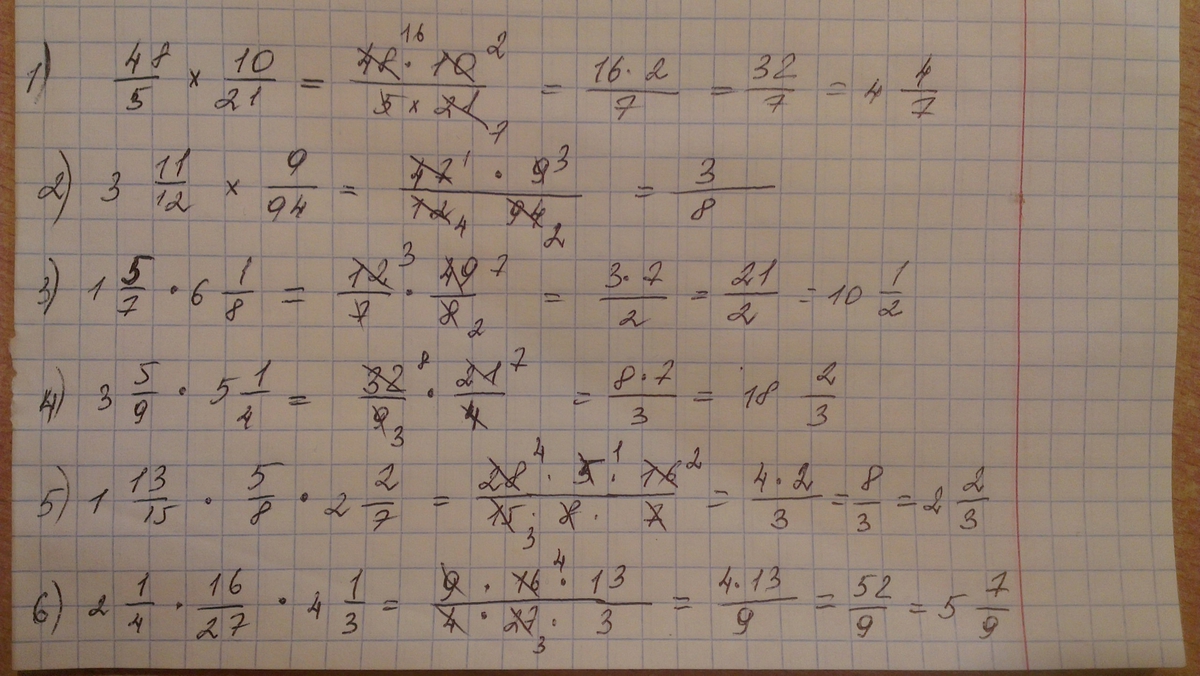 1) 48/5 × 10/21 = (48 16 · 10 2)/(5 × 21 7) = (16 · 2)/7 = 32/7 = 4 4/7
2) 3 11/12 × 9/94 = (47 1 · 9 3)/(12 4 94 2) = 3/8
3) 1 5/7 · 6 1/8 = 12 3/7 · 49 7/8 2 = (3 · 7)/2 = 21/2 = 10 1/2
4) 3 5/9 · 5 1/4 = 32 8/9 3 · 21 7/4 = (8 · 7)/3 = 18 2/3
5) 1 13/15 · 5/8 · 2 2/7 = (28 4 · 5 1 · 16 2)/(15 3 · 8 · 7) = (4 · 2)/3 = 8/3 = 2 2/3
6) 2 1/4 · 16/27 · 4 1/3 = (9 · 16 4 · 13)/(4 · 27 3 · 3) = (4 · 13)/9 = 52/9 = 5 7/9